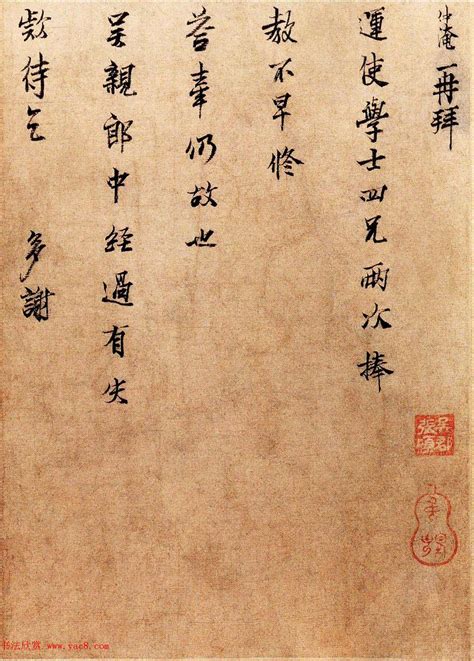 仲淹再拜
運使學士四兄兩次捧
教不早修
荅牽仍故也
吴親郎中經過有失
欵待乞 多謝
吳郡張
书法欣赏 www.yac8.com